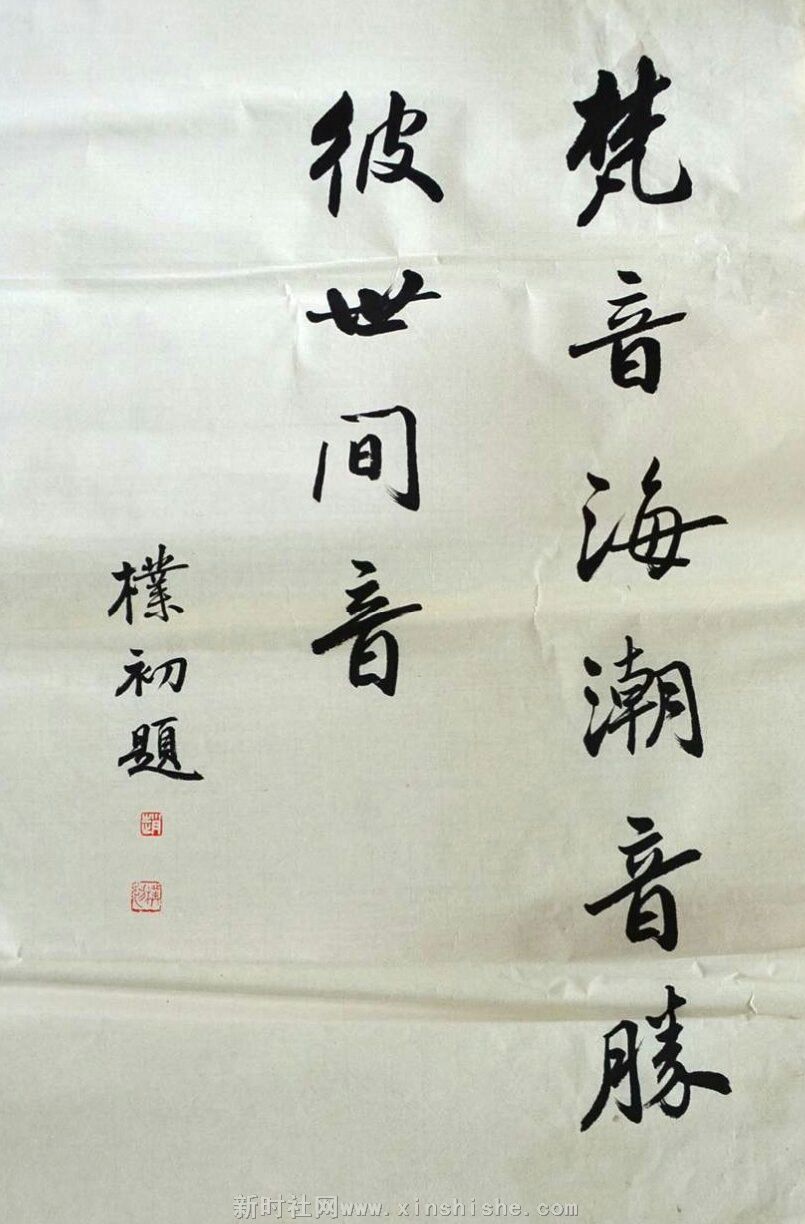 梵音海潮音勝
彼世间音
樸初題
趙
樸初
新时社网www.xinshishe.com